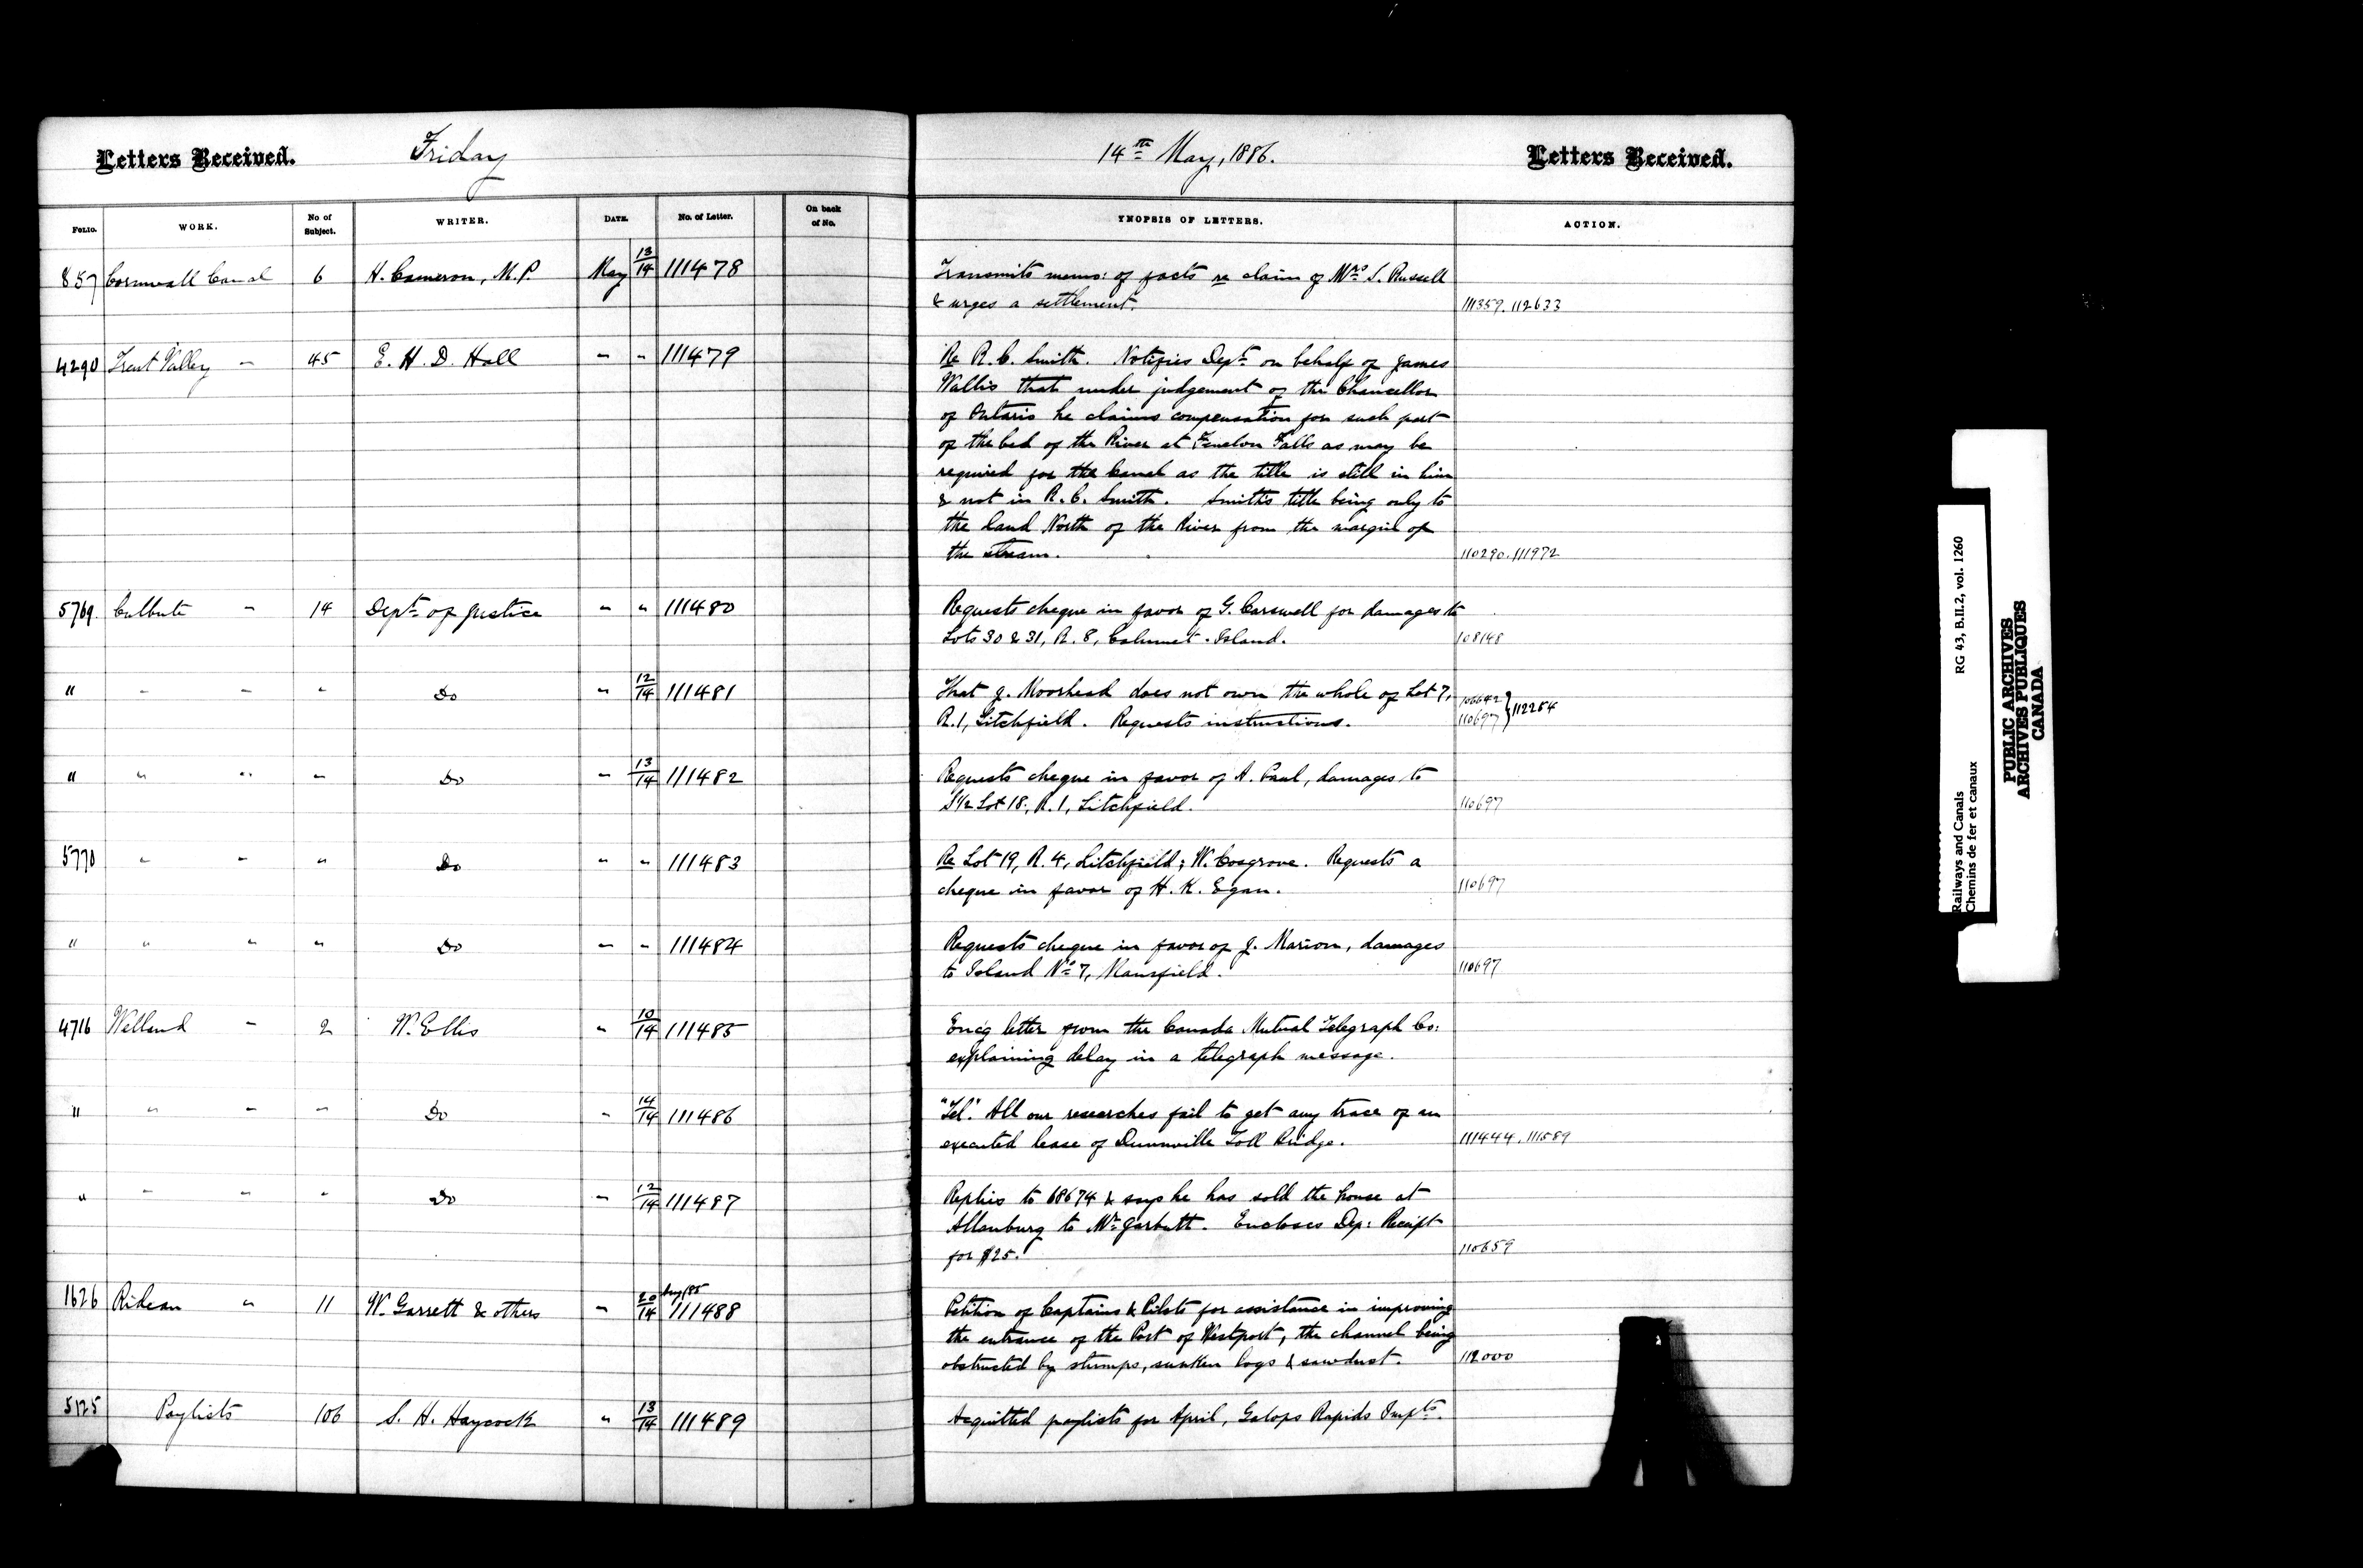 Letters Received. Friday 14th May, 1886. Letters Received.
FOLIO. WORK. No of Subject. WRITER. DATE. No. of Letter. On back of No. YNOPSIS OF LETTERS. ACTION.
857 Cornwall Canal 6 H. Cameron, M.P. May 13/14 111478 Transmits memo: of facts re claim of Mrs S. Russell
& urges a settlement. 111359. 112633
4290 Trent Valley " 45 E. H. D. Hall " " 111479 Re R. C. Smith. Notifies Dept. on behalf of James
Wallis that under judgement of the Chancellor
of Ontario he claims compensation for such part
of the bed of the River at Fenelon Falls as may be
required for the Canal as the title is still in him
& not in R. C. Smith. Smith's title being only to
the land North of the River from the margin of
the stream. 110290. 111972
5769. Culbute " 14 Dept. of Justice " " 111480 Requests cheque in favor of G. Carswell for damages to
Lots 30 & 31, R. 8, Calumet Island. 108148
" " " " Do " 12/14 111481 That J. Moorhead does not own the whole of Lot 7,
R. 1, Litchfield. Requests instructions. 106642 110697 } 112254
" " " " Do " 13/14 111482 Requests cheque in favor of A. Paul, damages to
S1/2 Lot 18, R. 1, Litchfield. 110697
5770 " " " Do " " 111483 Re Lot 19, R. 4, Litchfield; W. Cosgrove. Requests a
cheque in favor of H. K. Egan. 110697
" " " " Do " " 111484 Requests cheque in favor of J. Marion, damages
to Island No 7, Mansfield. 110697
4716 Welland " 2 W. Ellis " 10/14 111485 Enc'g letter from the Canada Mutual Telegraph Co:
explaining delay in a telegraph message.
" " " " Do " 14/14 111486 "Tel." All our researches fail to get any trace of an
executed lease of Dunnville Toll Bridge. 111444. 111589
" " " " Do " 12/14 111487 Replies to 68674 & says he has sold the house at
Allanburg to Mr Garbutt. Encloses Dep: Receipt
for $25. 110659
1626 Rideau " 11 W. Garrett & others " 20/14 Aug/85 111488 Petition of Captains & Pilots for assistance in improving
the entrance of the Port of Westport, the channel being
obstructed by stumps, sunken logs & sawdust. 112000
5125 Paylists 106 S. H. Haycock " 13/14 111489 Acquitted paylists for April, Galops Rapids Impts.
Railways and Canals RG 43, B.II.2, vol. 1260
Chemins de fer et canaux
PUBLIC ARCHIVES
ARCHIVES PUBLIQUES
CANADA